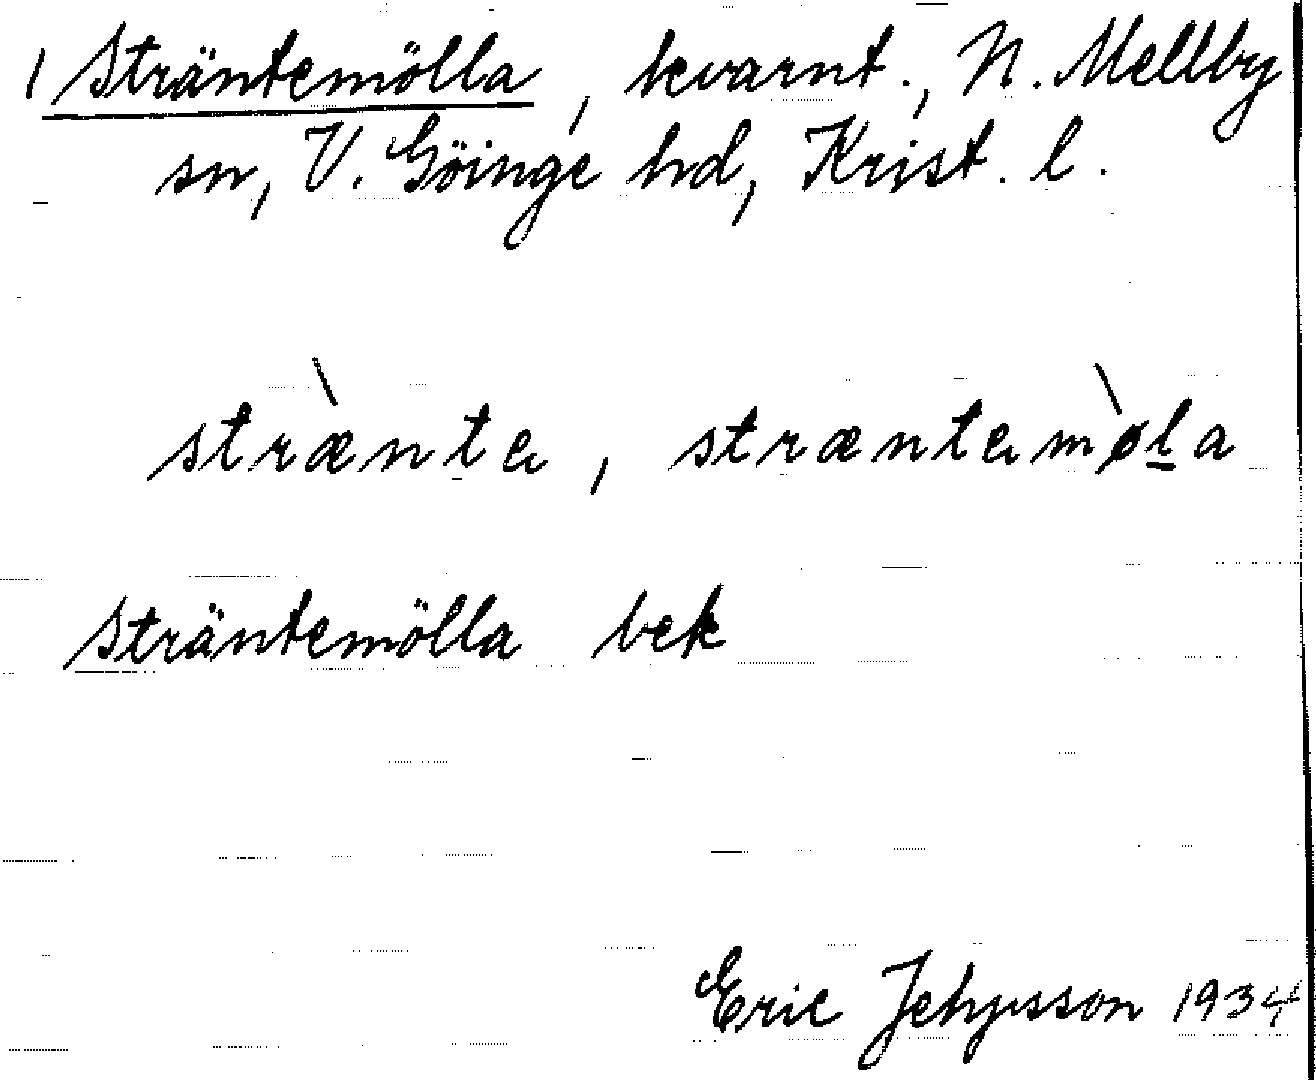 1 Sträntemölla, kvarnt., N. Mellby
sn, V. Göinge hd, Krist. l.
stræ̀nta, stræntamø̀l̲a
Sträntemölla bek
Eric 1934